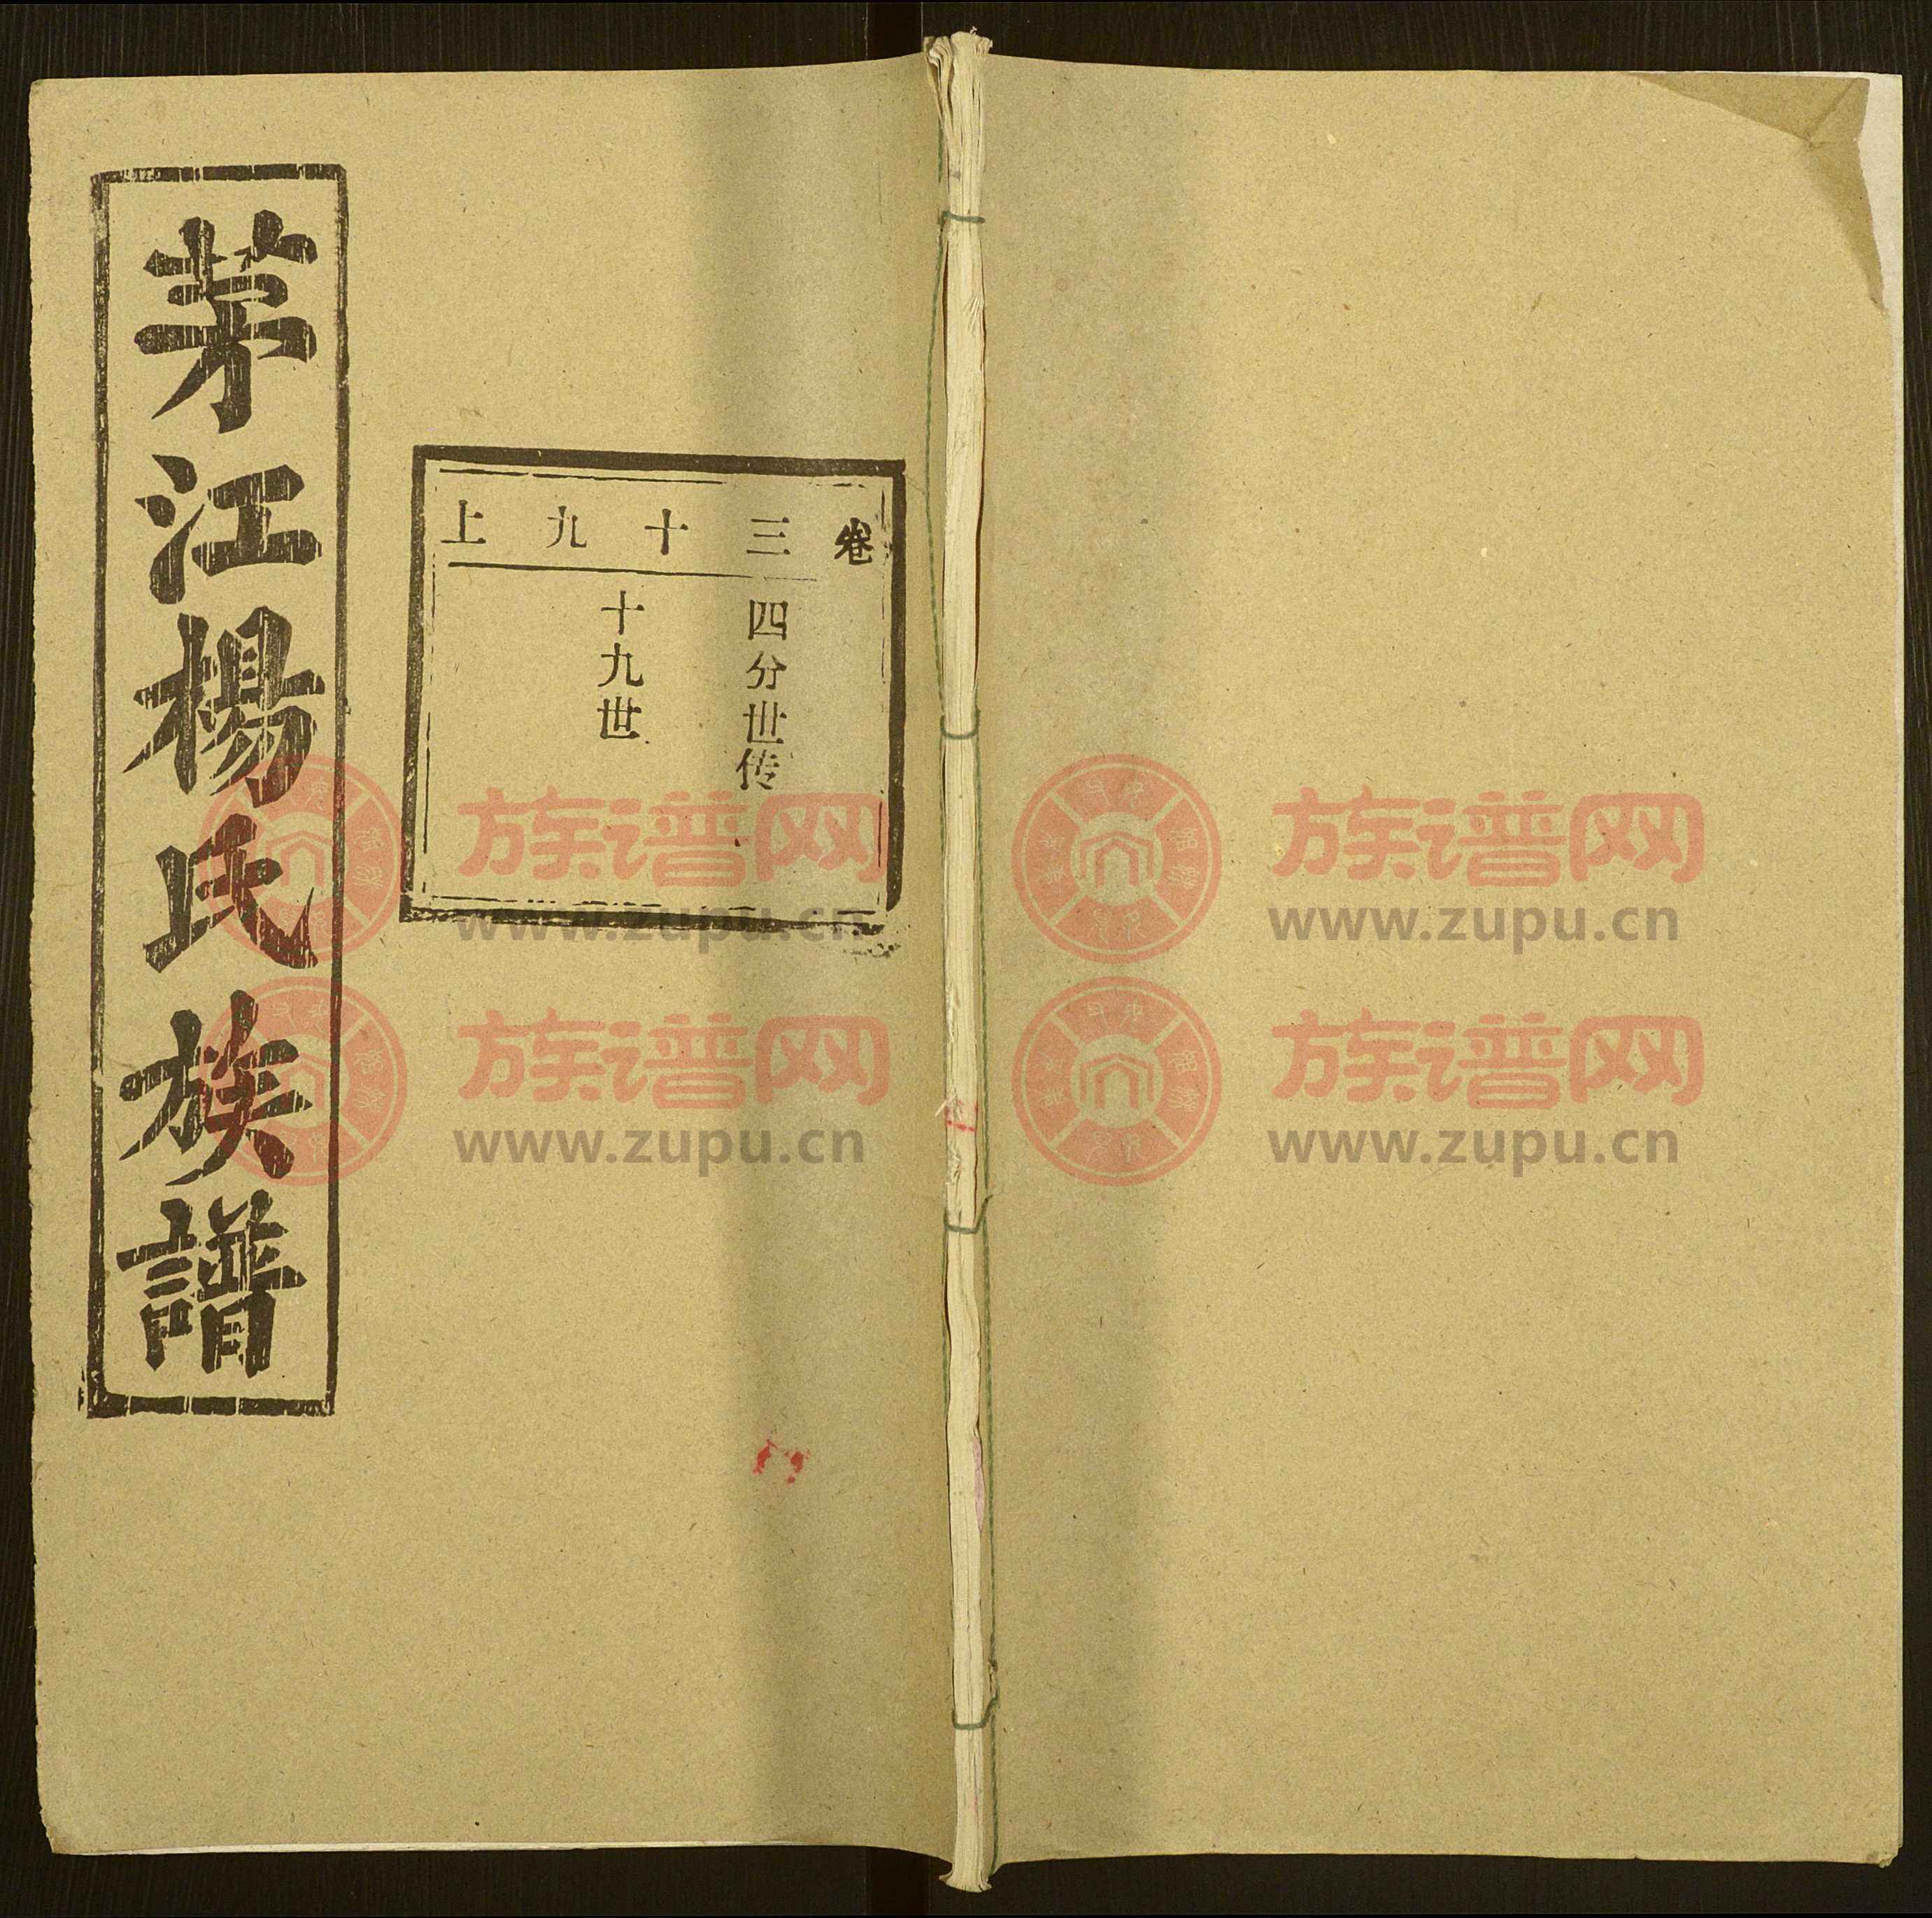 茅江楊氏族譜
卷三十九上
四分世传
十九世
族谱网
www.zupu.cn
族谱网
www.zupu.cn
族谱网
www.zupu.cn
族谱网
www.zupu.cn